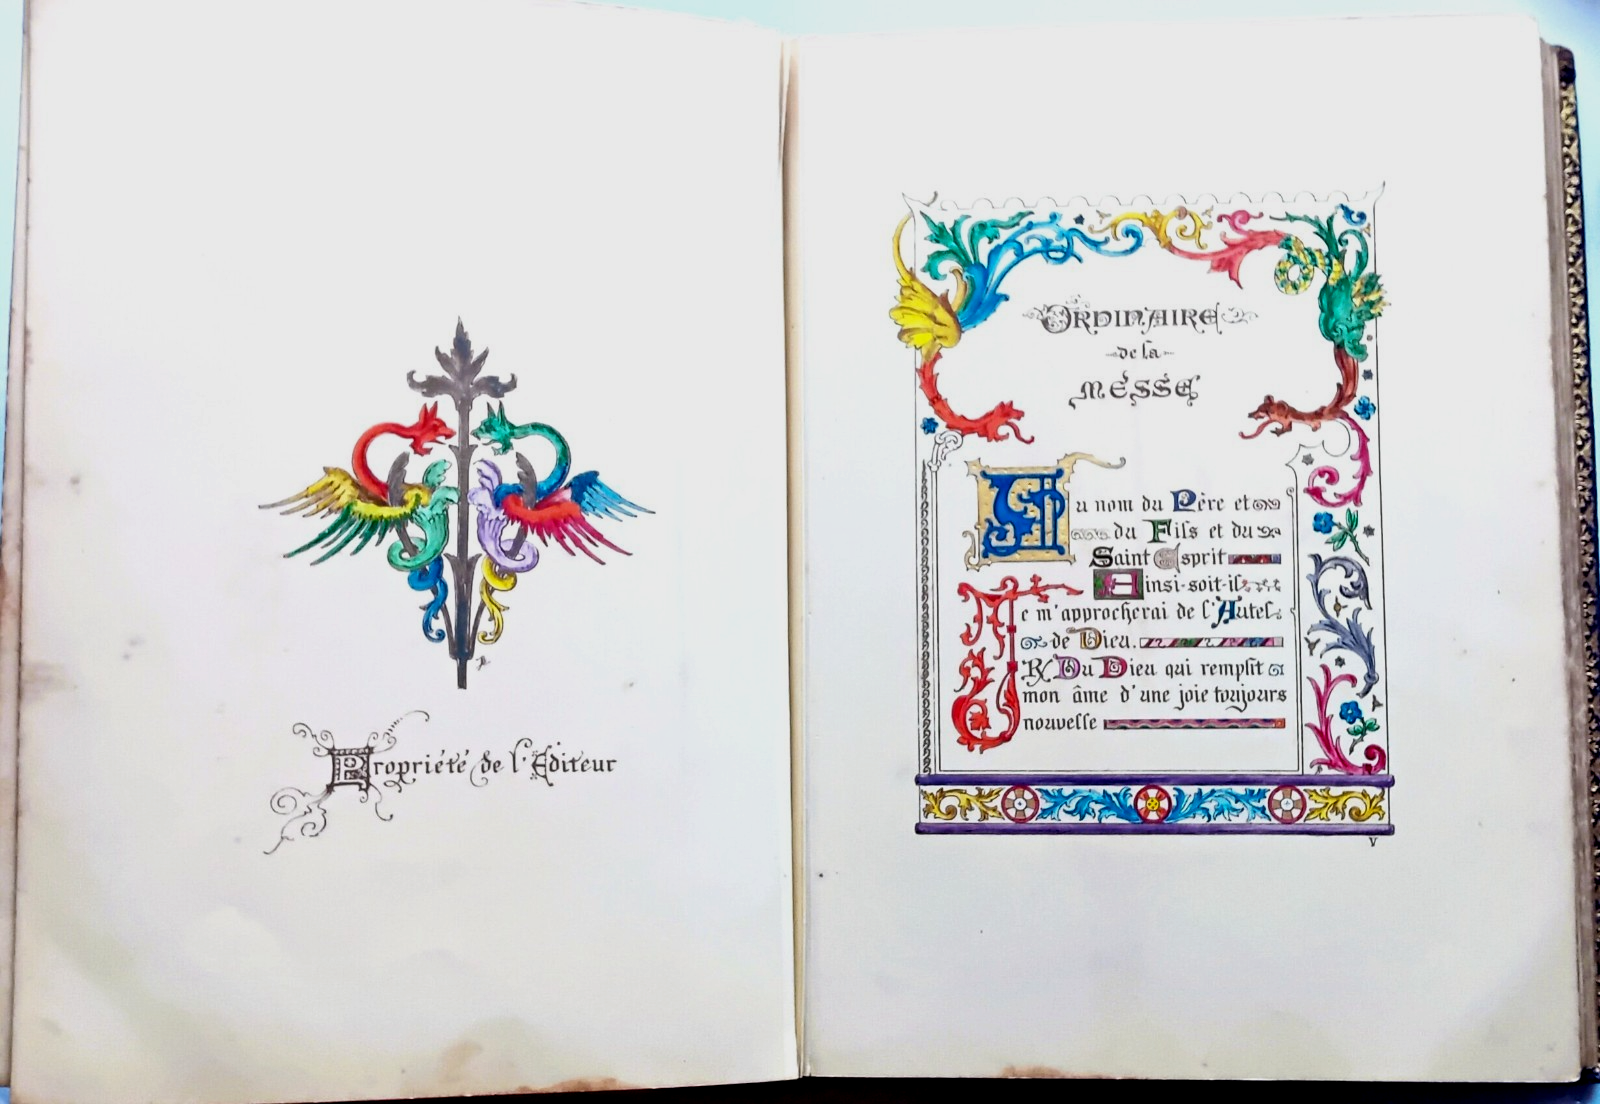 Propriété de l'Editeur
ORDINAIRE
de la
MESSE
Au nom du Père et
du Fils et du
Saint Esprit
Ainsi-soit-il
Je m'approcherai de l'Autel
de Dieu.
R Du Dieu qui remplit
mon âme d'une joie toujours
nouvelle
V